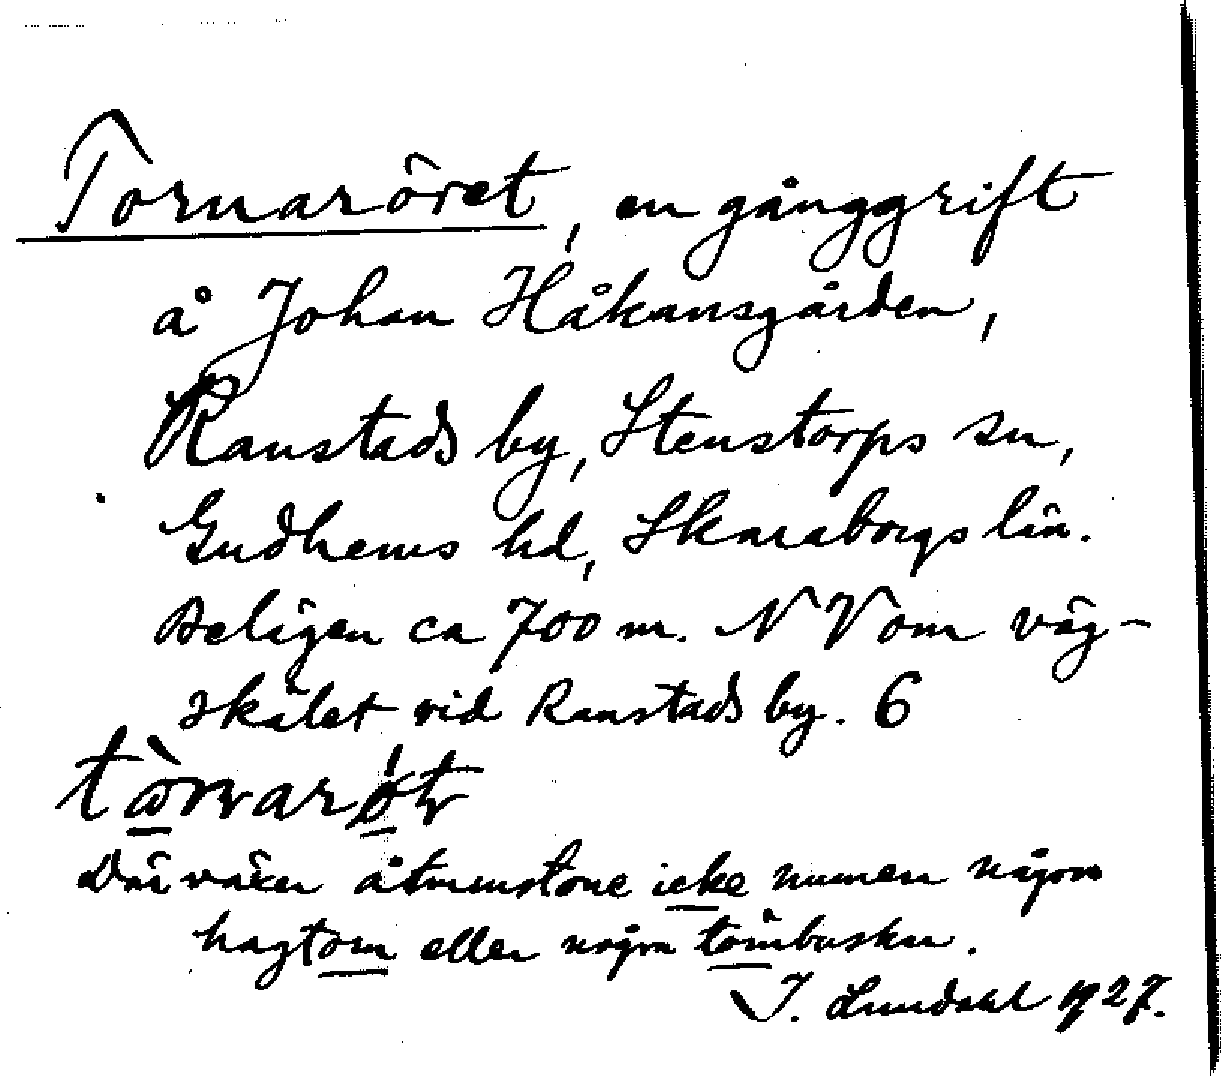 Tornaröret, en gånggrift
å Johan Håkansgården,
Ranstads by, Stenstorps sn,
Gudhems hd, Skaraborgs län.
Belägen ca 700 m. NV om väg-
skälet vid Ranstads by. 6
Där växer åtminstone icke numera någon
hagtorn eller några törnbuskar.
I. Lundahl 1927.